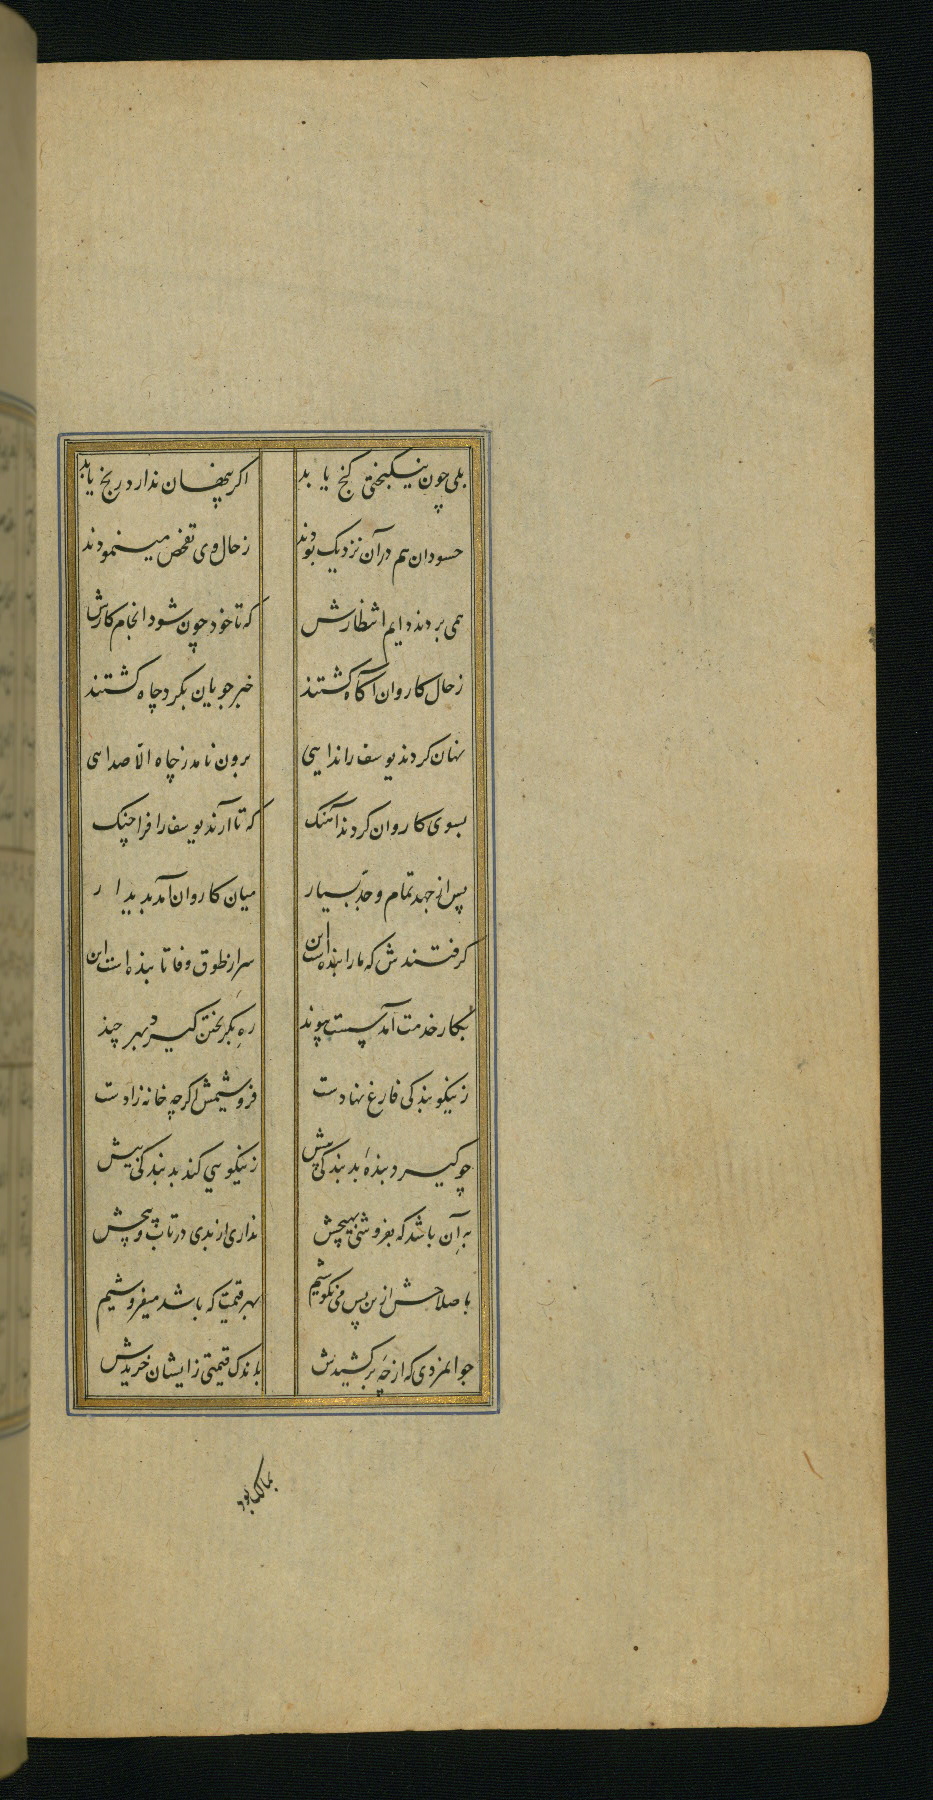 بلی چون نیکبختی گنج یابد اگر پنهان ندارد رنج یابد
حسودان هم در آن نزدیک بودند ز حال وی تفحص مینمودند
همی بردند دایم انتظارش که تا خود چون شود انجام کارش
ز حال کاروان آگاه گشتند خبر جویان بگرد چاه گشتند
نهان کردند یوسف را ندایی برون نامد ز چاه الا صدایی
بسوی کاروان کردند آهنگ که تا آرند یوسف را فرا چنگ
پس از جهد تمام و جد بسیار میان کاروان آمد پدیدار
گرفتندش که ما را بنده است این سر از طوق وفا تابنده است این
بکار خدمت آمد سست پیوند ره بگریختن گیرد بهر چند
ز نیکو بندگی فارغ نهادست فروشیمش اگرچه خانه زادست
چو گیرد بندهٔ بد بندگی پیش ز نیکویی کند بد بندگی بیش
به آن باشد که بفروشی بهیچش نداری از بدی در تاب و پیچش
با صلاحش ازین پس می نکوشیم بهر قیمت که باشد میفروشیم
جوانمردی که از چه برکشیدش باندک قیمتی زایشان خریدش
بمالک بود